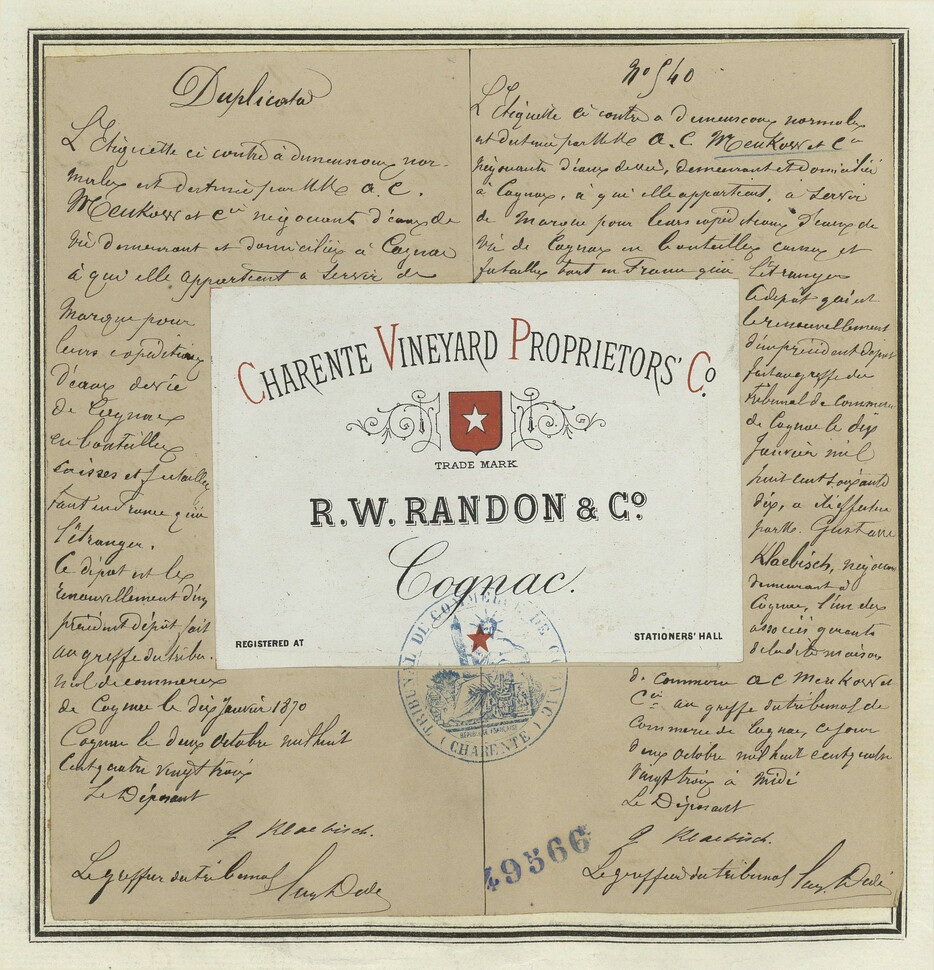 Duplicata
L'Etiquette ci contre à dimensions nor-
males est destinée par MM A. C.
Meukow et Cie négociants d'eaux de
vie demeurant et domiciliés à Cognac
à qui elle appartient a servir de
Marque pour
leurs expéditions
d'eaux de vie
de Cognac
en bouteilles
caisses et futailles
tant en France qu'à
l'étranger.
Ce dépôt est le
renouvellement d'un
précédent dépôt fait
au greffe du tribu-
nal de commerce
de Cognac le dix Janvier 1870
Cognac le deux Octobre mil huit
cent quatre vingt trois
Le Déposant
G Klaebisch.
Le greffier du tribunal
No 540
L'Etiquette ci contre a dimensions normales
et destinée par MM A. C. Meukow et Cie
négociants d'eaux de vie, demeurant et domiciliés
à Cognac, à qui elle appartient, a servir
de Marque pour leurs expéditions d'eaux de
vie de Cognac en bouteilles caisses et
futailles tant en France qu'à l'étranger
Ce dépôt qui est
le renouvellement
d'un précédent dépôt
fait au greffe du
tribunal de commerce
de Cognac le dix
Janvier mil
huit cent soixante
dix, a été effectué
par M. Gustave
Klaebisch, négociant
demeurant à
Cognac, l'un des
associés gérants
de la dite maison
de commerce A C Meukow et
Cie au greffe du tribunal de
commerce de Cognac, ce jour
deux octobre mil huit cent quatre
vingt trois à midi
Le Déposant
G Klaebisch.
Le greffier du tribunal
CHARENTE VINEYARD PROPRIETORS' Co.
TRADE MARK
R.W. RANDON & Co.
Cognac.
REGISTERED AT STATIONERS' HALL
TRIBUNAL DE COMMERCE DE COGNAC
REPUBLIQUE FRANÇAISE
( CHARENTE )
49566